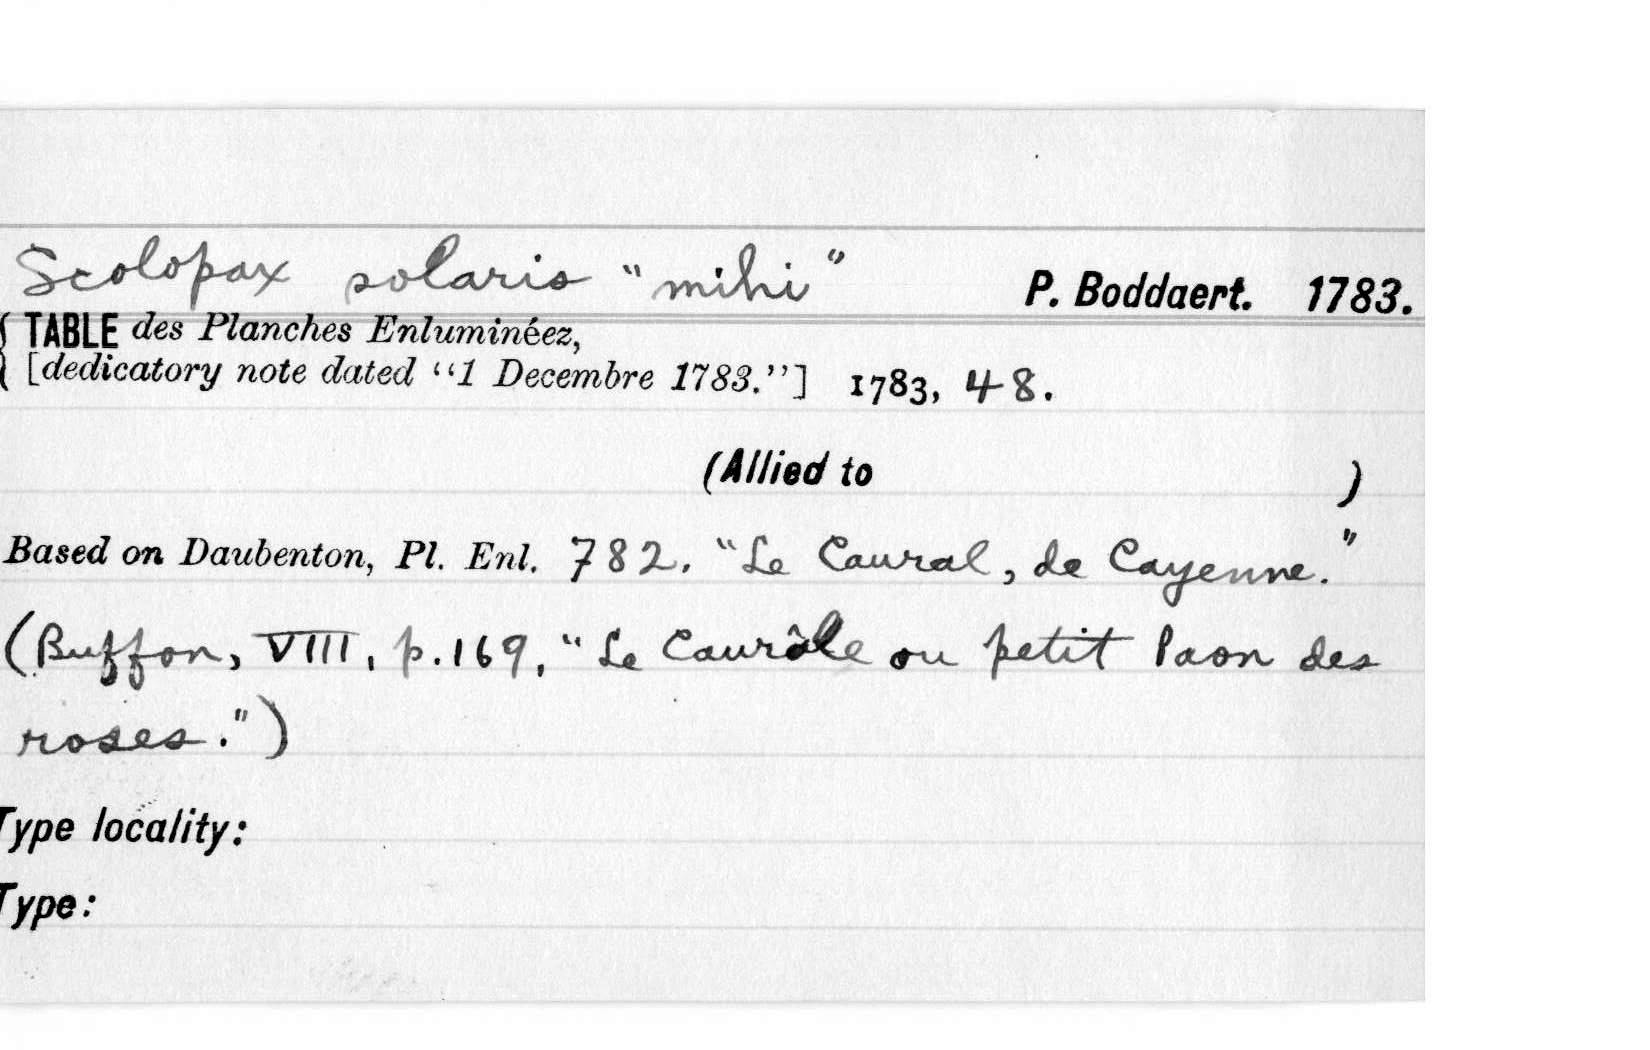 Scolopax solaris "mihi" P. Boddaert. 1783.
TABLE des Planches Enluminéez,
[dedicatory note dated “1 Decembre 1783.”] 1783, 48.
(Allied to )
Based on Daubenton, Pl. Enl. 782. "Le Caural, de Cayenne."
(Buffon, VIII, p.169, "Le Caurâle ou petit Paon des
roses.")
Type locality:
Type: